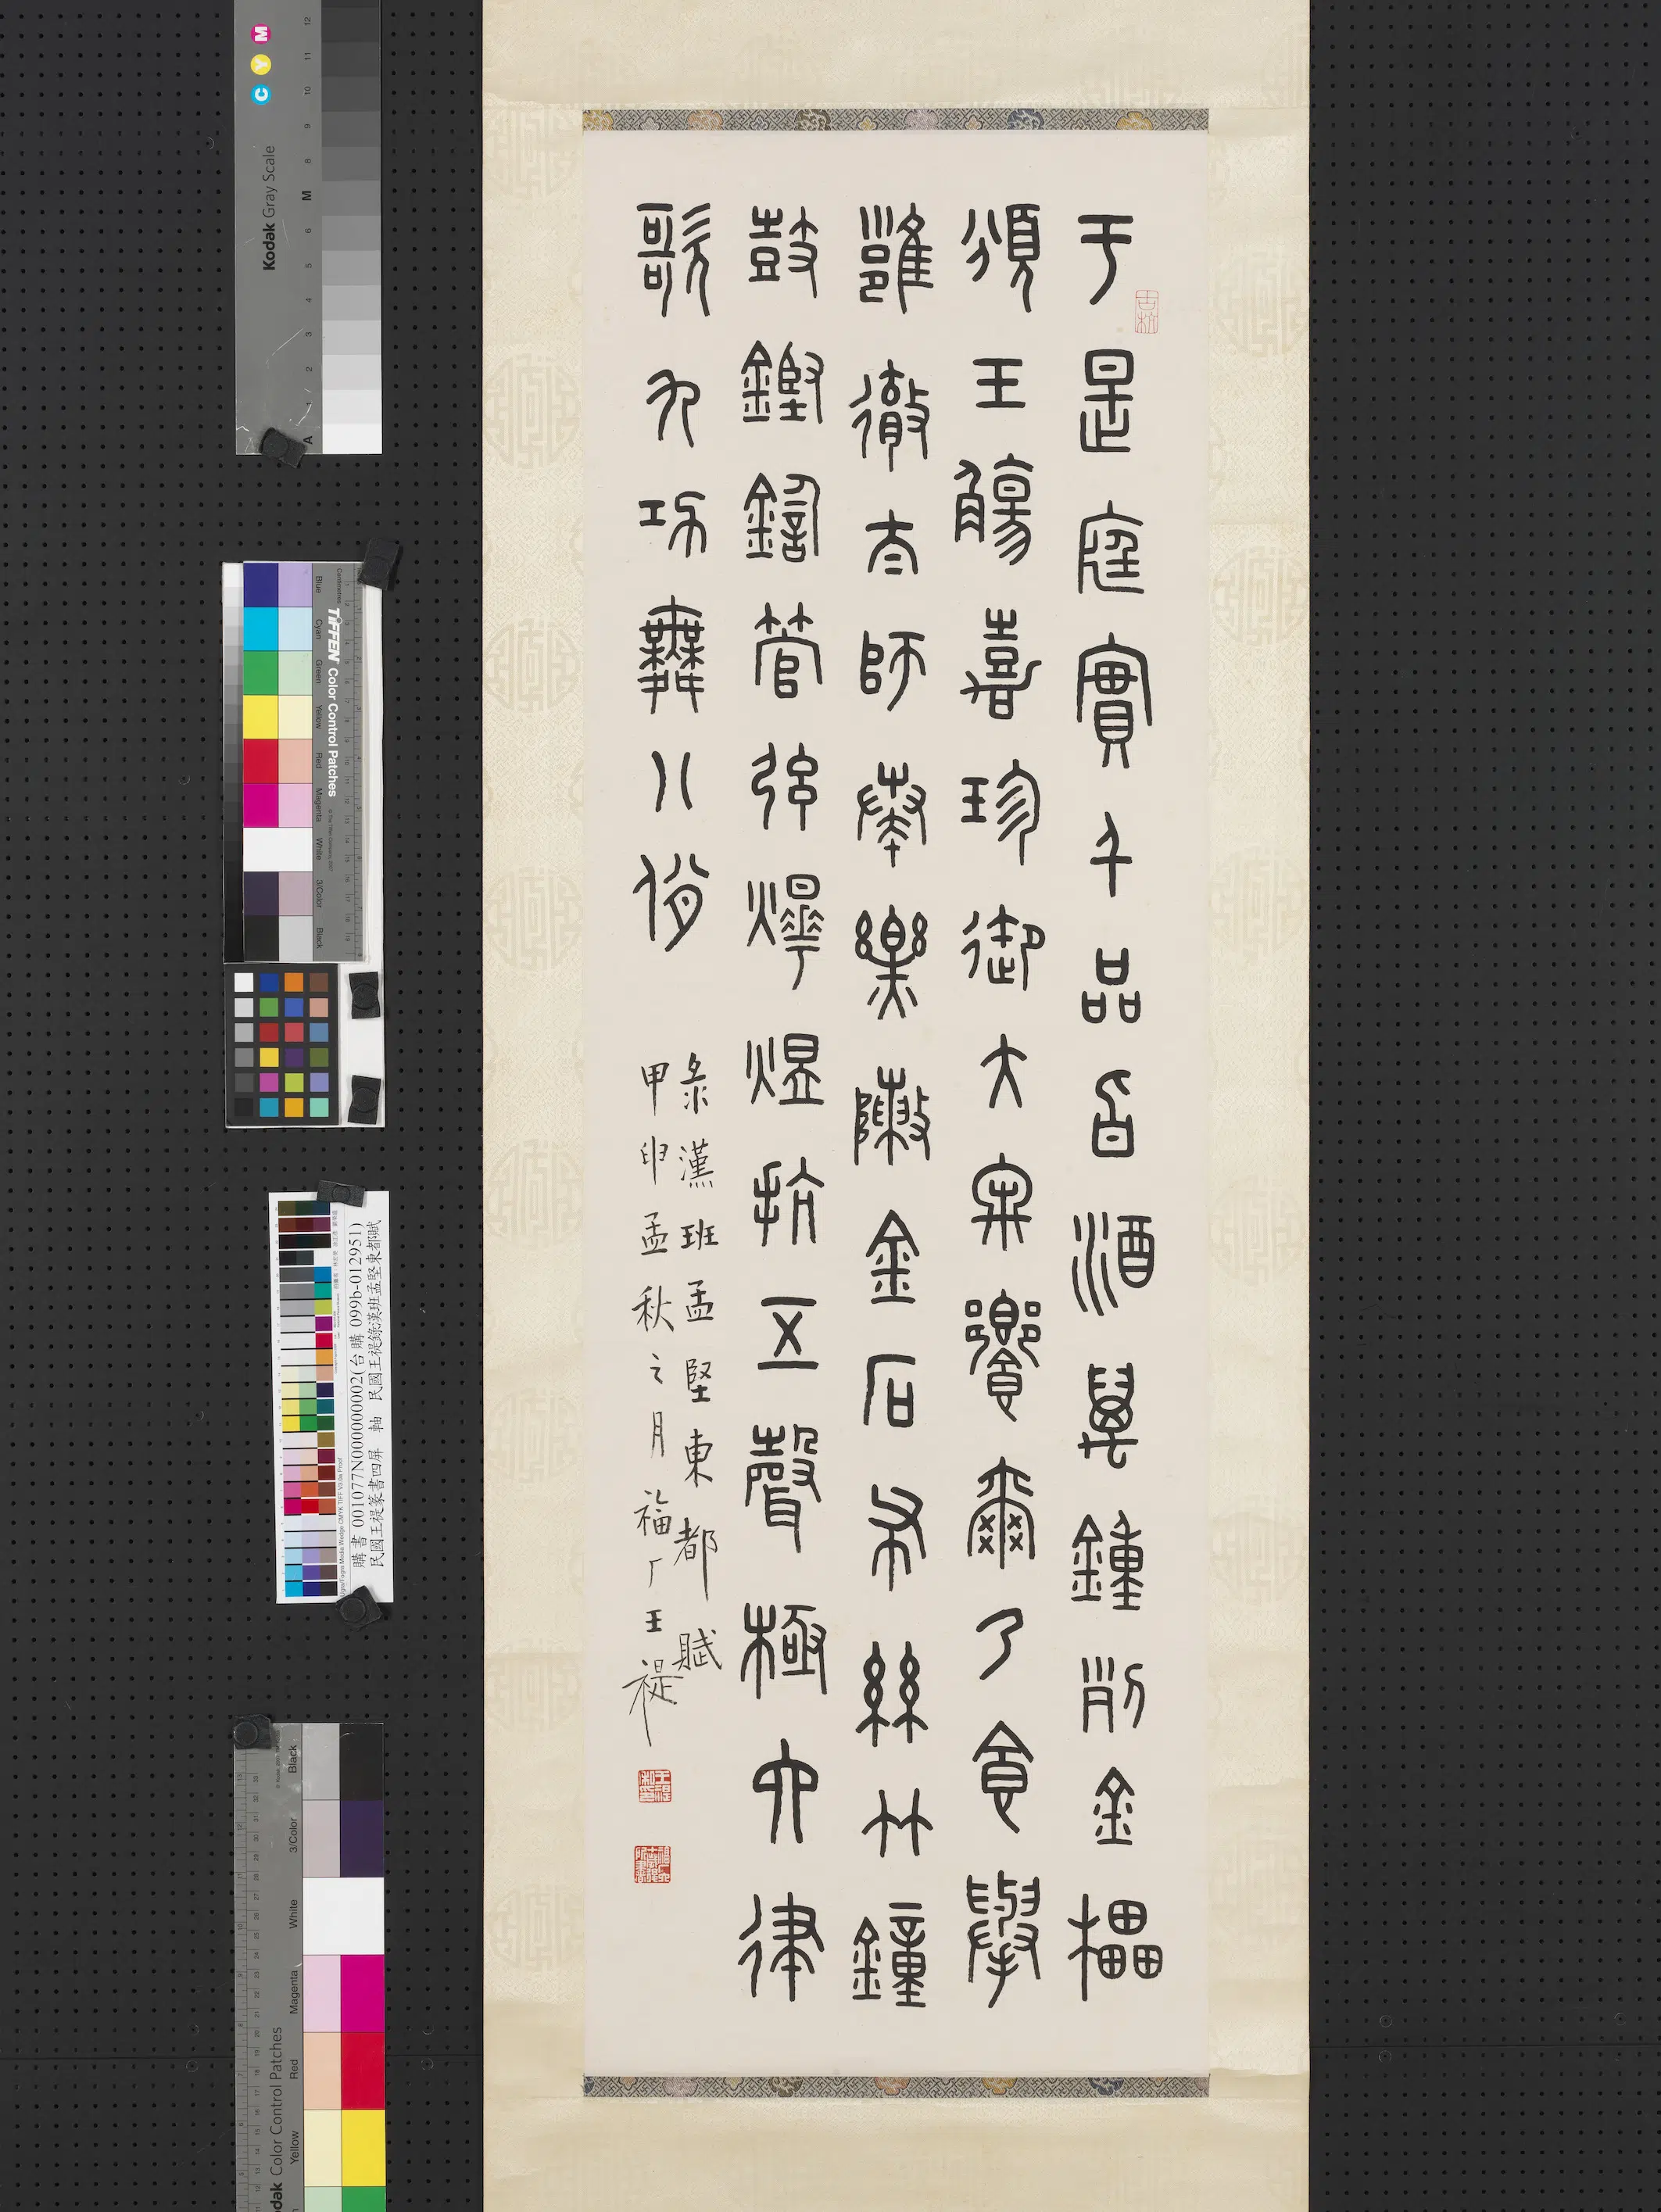 于是庭實千品旨酒萬鍾列金櫑
頒玉觴嘉珍御大牢饗爾乃食舉
雝徹太師奏樂陳金石布絲竹鐘
鼓鏗鍧管弦燁煜抗五聲極六律
歌九功舞八佾
彔漢班孟堅東都賦
甲申孟秋之月福厂王禔
王禔私印
Kodak Gray Scale
C Y M
TIFFEN Color Control Patches
Blue Cyan Green Yellow Red Magenta White 3/Color Black
購書 001077N000000002(台購 099b-012951)
民國王禔篆書四屏 軸 民國王禔錄漢班孟堅東都賦
Kodak Color Control Patches
Black 3/Color White Magenta Red Yellow